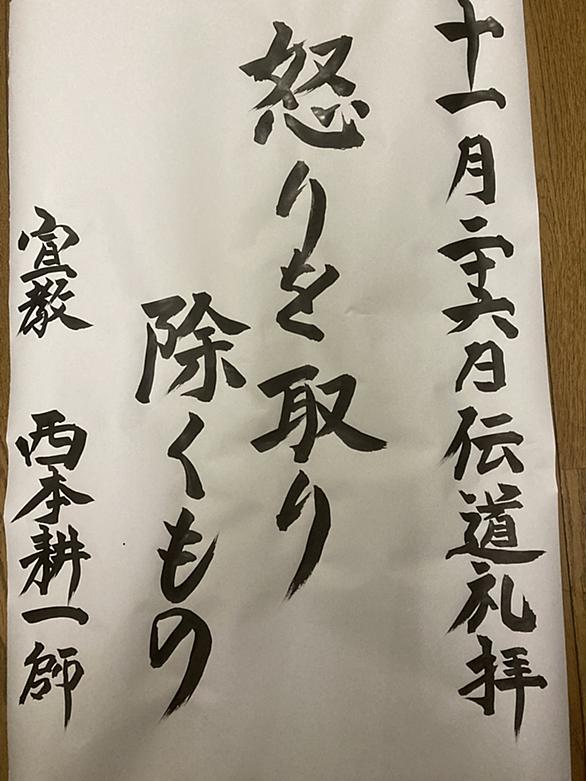 十一月二十六日伝道礼拝
怒りを取り
除くもの
宣教 西本耕一師